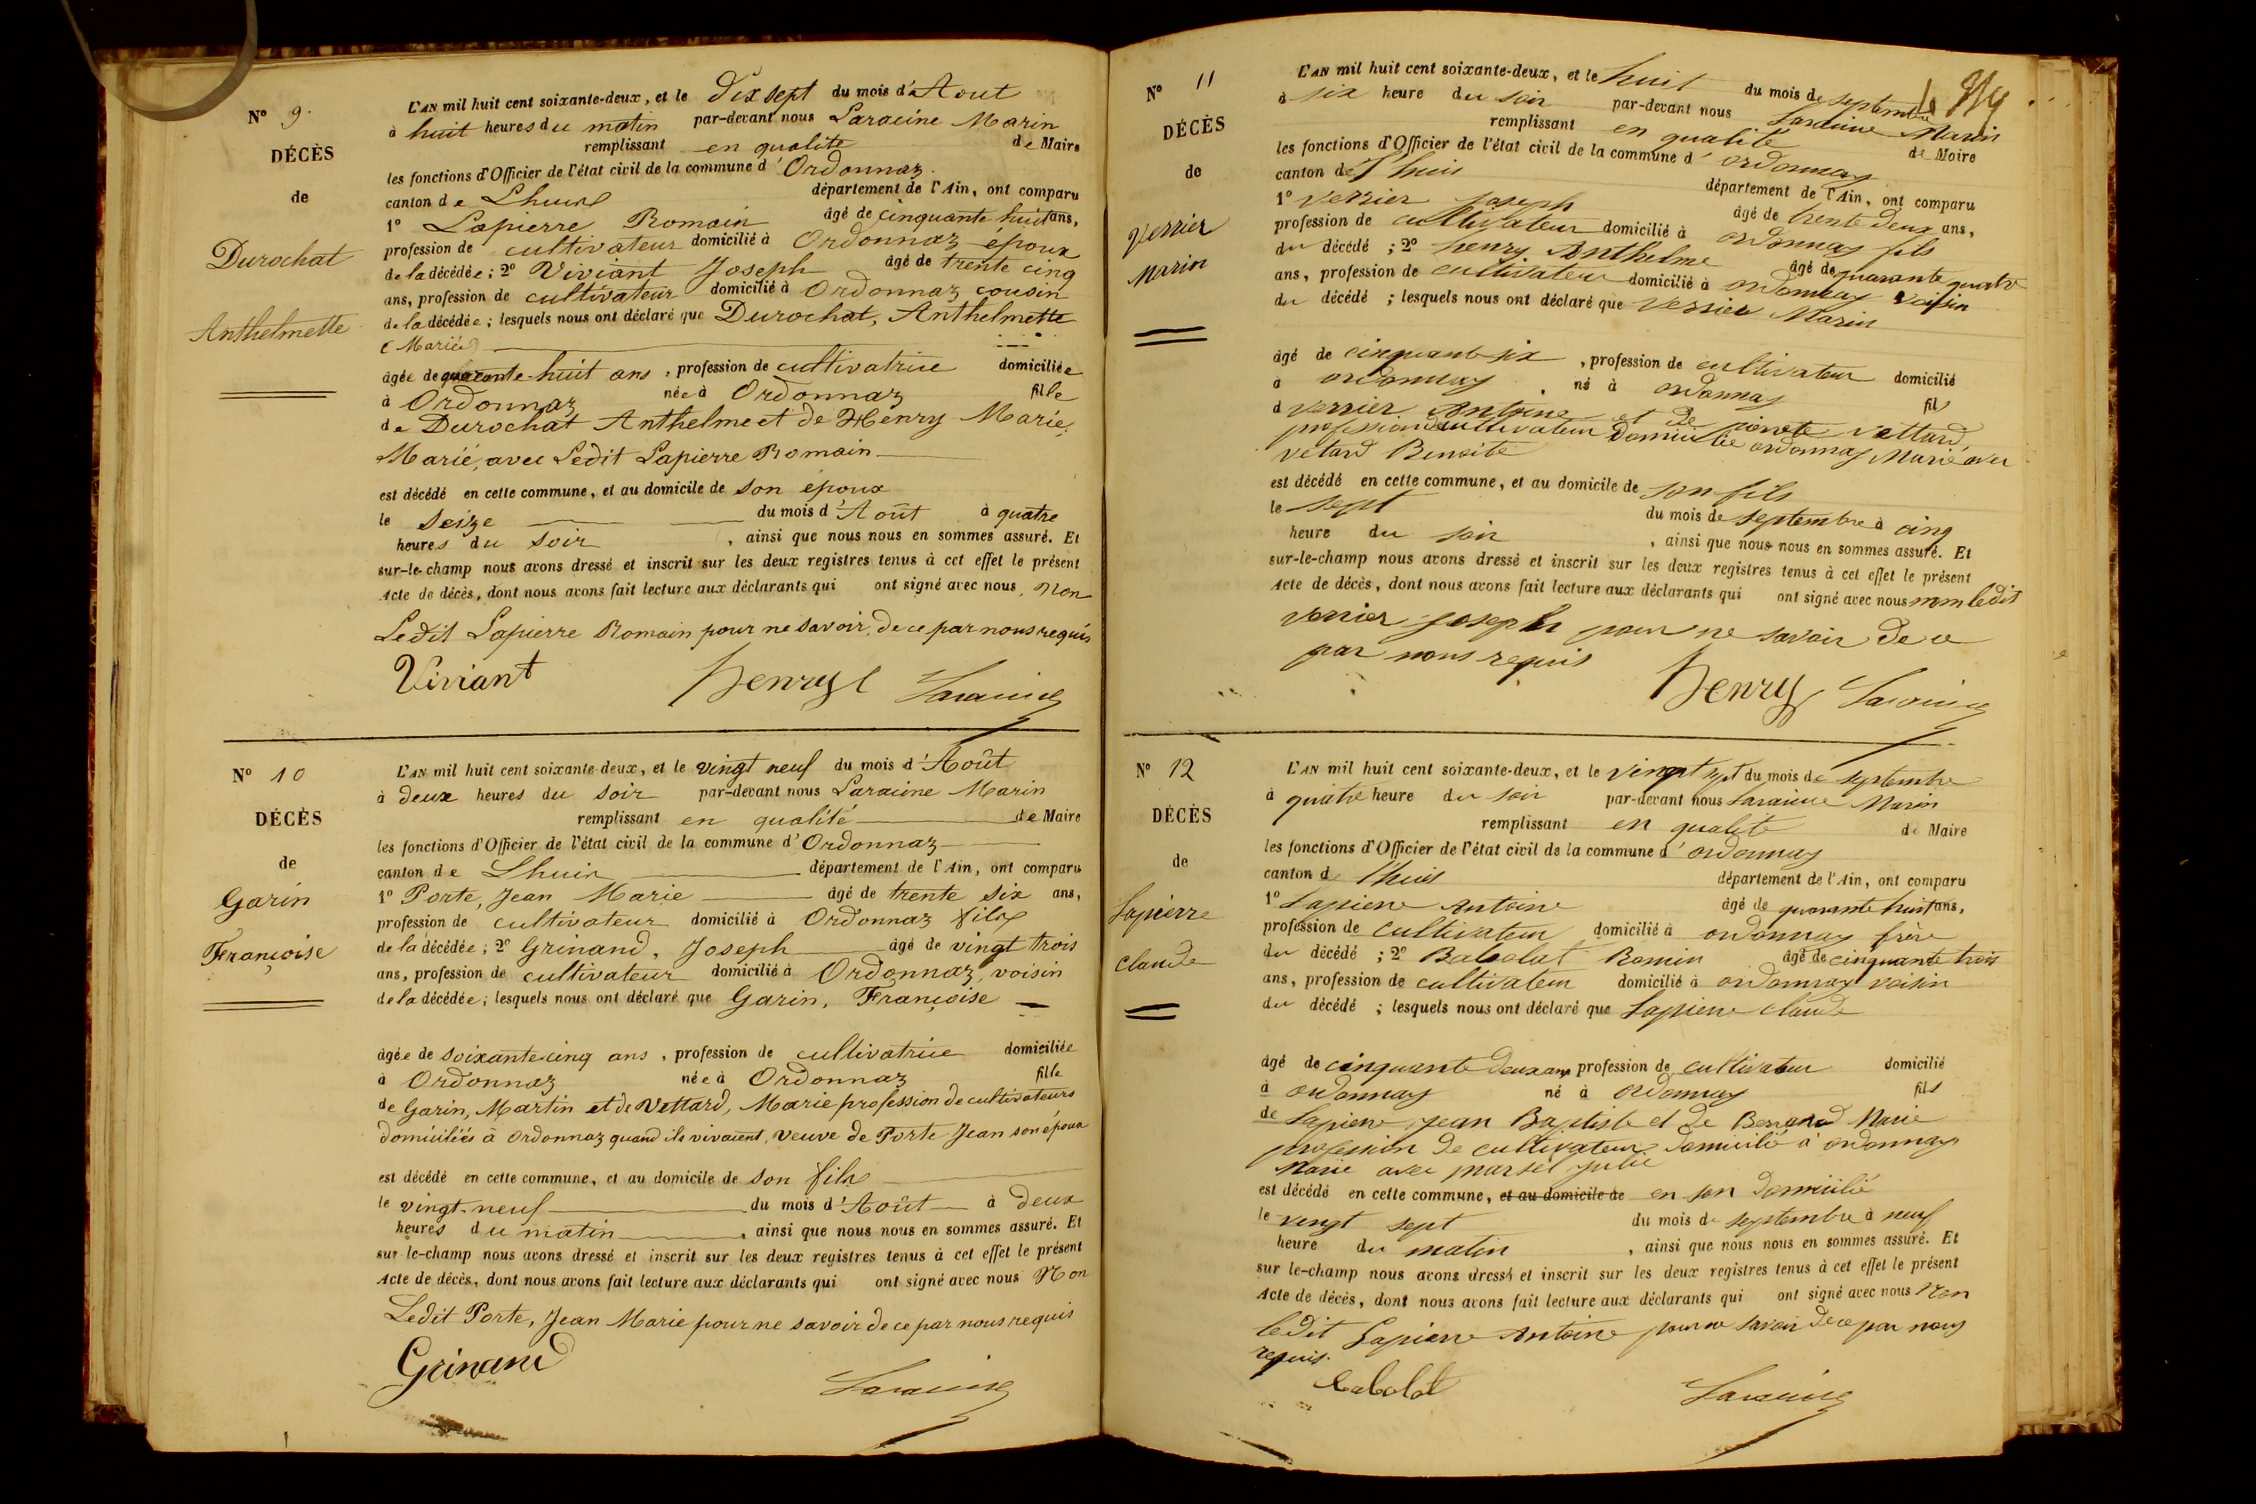 N° 9.
DÉCÈS
de
Durochat
Anthelmette
L'AN mil huit cent soixante-deux, et le dix sept du mois d'Aout
à huit heures du matin par-devant nous Saraüine Marin
remplissant en qualité de Maire
les fonctions d'Officier de l'état civil de la commune d'Ordonnaz.
canton de Lhuis département de l'Ain, ont comparu
1° Lapierre Romain âgé de cinquante huit ans,
profession de cultivateur domicilié à Ordonnaz époux
de la décédée; 2° Viviant Joseph âgé de trente cinq
ans, profession de cultivateur domicilié à Ordonnaz cousin
de la décédée; lesquels nous ont déclaré que Durochat, Anthelmette
(Mariée)
âgée de quarante-huit ans, profession de cultivatrice domiciliée
à Ordonnaz née à Ordonnaz fille
de Durochat Anthelme et de Henry Marie,
Marié, avec Ledit Lapierre Romain
est décédé en cette commune, et au domicile de son époux
le seize du mois d'Août à quatre
heures du soir, ainsi que nous nous en sommes assuré. Et
sur-le-champ nous avons dressé et inscrit sur les deux registres tenus à cet effet le présent
Acte de décès, dont nous avons fait lecture aux déclarants qui ont signé avec nous, Non
Ledit Lapierre Romain pour ne savoir, de ce par nous requis
Viviant Henry
N° 10
DÉCÈS
de
Garin
Françoise
L'AN mil huit cent soixante-deux, et le vingt neuf du mois d'Août
à deux heures du soir par-devant nous Saraüine Marin
remplissant en qualité de Maire
les fonctions d'Officier de l'état civil de la commune d'Ordonnaz
canton de Lhuis département de l'Ain, ont comparu
1° Porte, Jean Marie âgé de trente six ans,
profession de cultivateur domicilié à Ordonnaz fils
de la décédée; 2° Grinand, Joseph âgé de vingt trois
ans, profession de cultivateur domicilié à Ordonnaz, voisin
de la décédée; lesquels nous ont déclaré que Garin, Françoise
âgée de soixante-cinq ans, profession de cultivatrice domiciliée
à Ordonnaz née à Ordonnaz fille
de Garin, Martin et de Vettard, Marie profession de cultivateurs
domiciliés à Ordonnaz quand ils vivaient, veuve de Porte Jean son époux
est décédé en cette commune, et au domicile de son fils
le vingt-neuf du mois d'Août à deux
heures du matin, ainsi que nous nous en sommes assuré. Et
sur le-champ nous avons dressé et inscrit sur les deux registres tenus à cet effet le présent
Acte de décès, dont nous avons fait lecture aux déclarants qui ont signé avec nous Non
Ledit Porte, Jean Marie pour ne savoir de ce par nous requis
Grinand
N° 11
DÉCÈS
de
Verrier
Marin
L'AN mil huit cent soixante-deux, et le huit du mois de septembre
à six heure du soir par-devant nous Saraüine Marin
remplissant en qualité de Maire
les fonctions d'Officier de l'état civil de la commune d'ordonnaz
canton de Lhuis département de l'Ain, ont comparu
1° Verrier joseph âgé de trente deux ans,
profession de cultivateur domicilié à ordonnaz fils
du décédé; 2° henry Anthelme âgé de quarante quatre
ans, profession de cultivateur domicilié à ordonnaz voisin
du décédé; lesquels nous ont déclaré que Verrier Marin
âgé de cinquante six, profession de cultivateur domicilié
à ordonnaz, né à ordonnaz fils
d verrier Antoine et de pierrete vettard
profession de cultivateur domiciliée ordonnaz Marié avec
vetard Benoite
est décédé en cette commune, et au domicile de son fils
le sept du mois de septembre à cinq
heure du soir, ainsi que nous nous en sommes assuré. Et
sur-le-champ nous avons dressé et inscrit sur les deux registres tenus à cet effet le présent
Acte de décès, dont nous avons fait lecture aux déclarants qui ont signé avec nous non ledit
verrier joseph pour ne savoir de ce
par nous requis
Henry
N° 12
DÉCÈS
de
Lapierre
claude
L'AN mil huit cent soixante-deux, et le vingt sept du mois de septembre
à quatre heure du soir par-devant nous Saraüine Marin
remplissant en qualité de Maire
les fonctions d'Officier de l'état civil de la commune d'ordonnaz
canton de lhuis département de l'Ain, ont comparu
1° Lapierre Antoine âgé de quarante huit ans,
profession de cultivateur domicilié à ordonnaz frère
du décédé; 2° Babolat Romin âgé de cinquante trois
ans, profession de cultivateur domicilié à ordonnaz voisin
du décédé; lesquels nous ont déclaré que Lapierre claude
âgé de cinquante deux ans profession de cultivateur domicilié
à ordonnaz né à ordonnaz fils
de Lapierre jean Baptiste et de Berrand Marie
profession de cultivateur domicilié à ordonnaz
Marié avec marsel julie
est décédé en cette commune, et au domicile de en son domicilié
le vingt sept du mois de septembre à neuf
heure du matin, ainsi que nous nous en sommes assuré. Et
sur le-champ nous avons dressé et inscrit sur les deux registres tenus à cet effet le présent
Acte de décès, dont nous avons fait lecture aux déclarants qui ont signé avec nous Non
ledit Lapierre Antoine pour ne savoir de ce par nous
requis.
Babolat